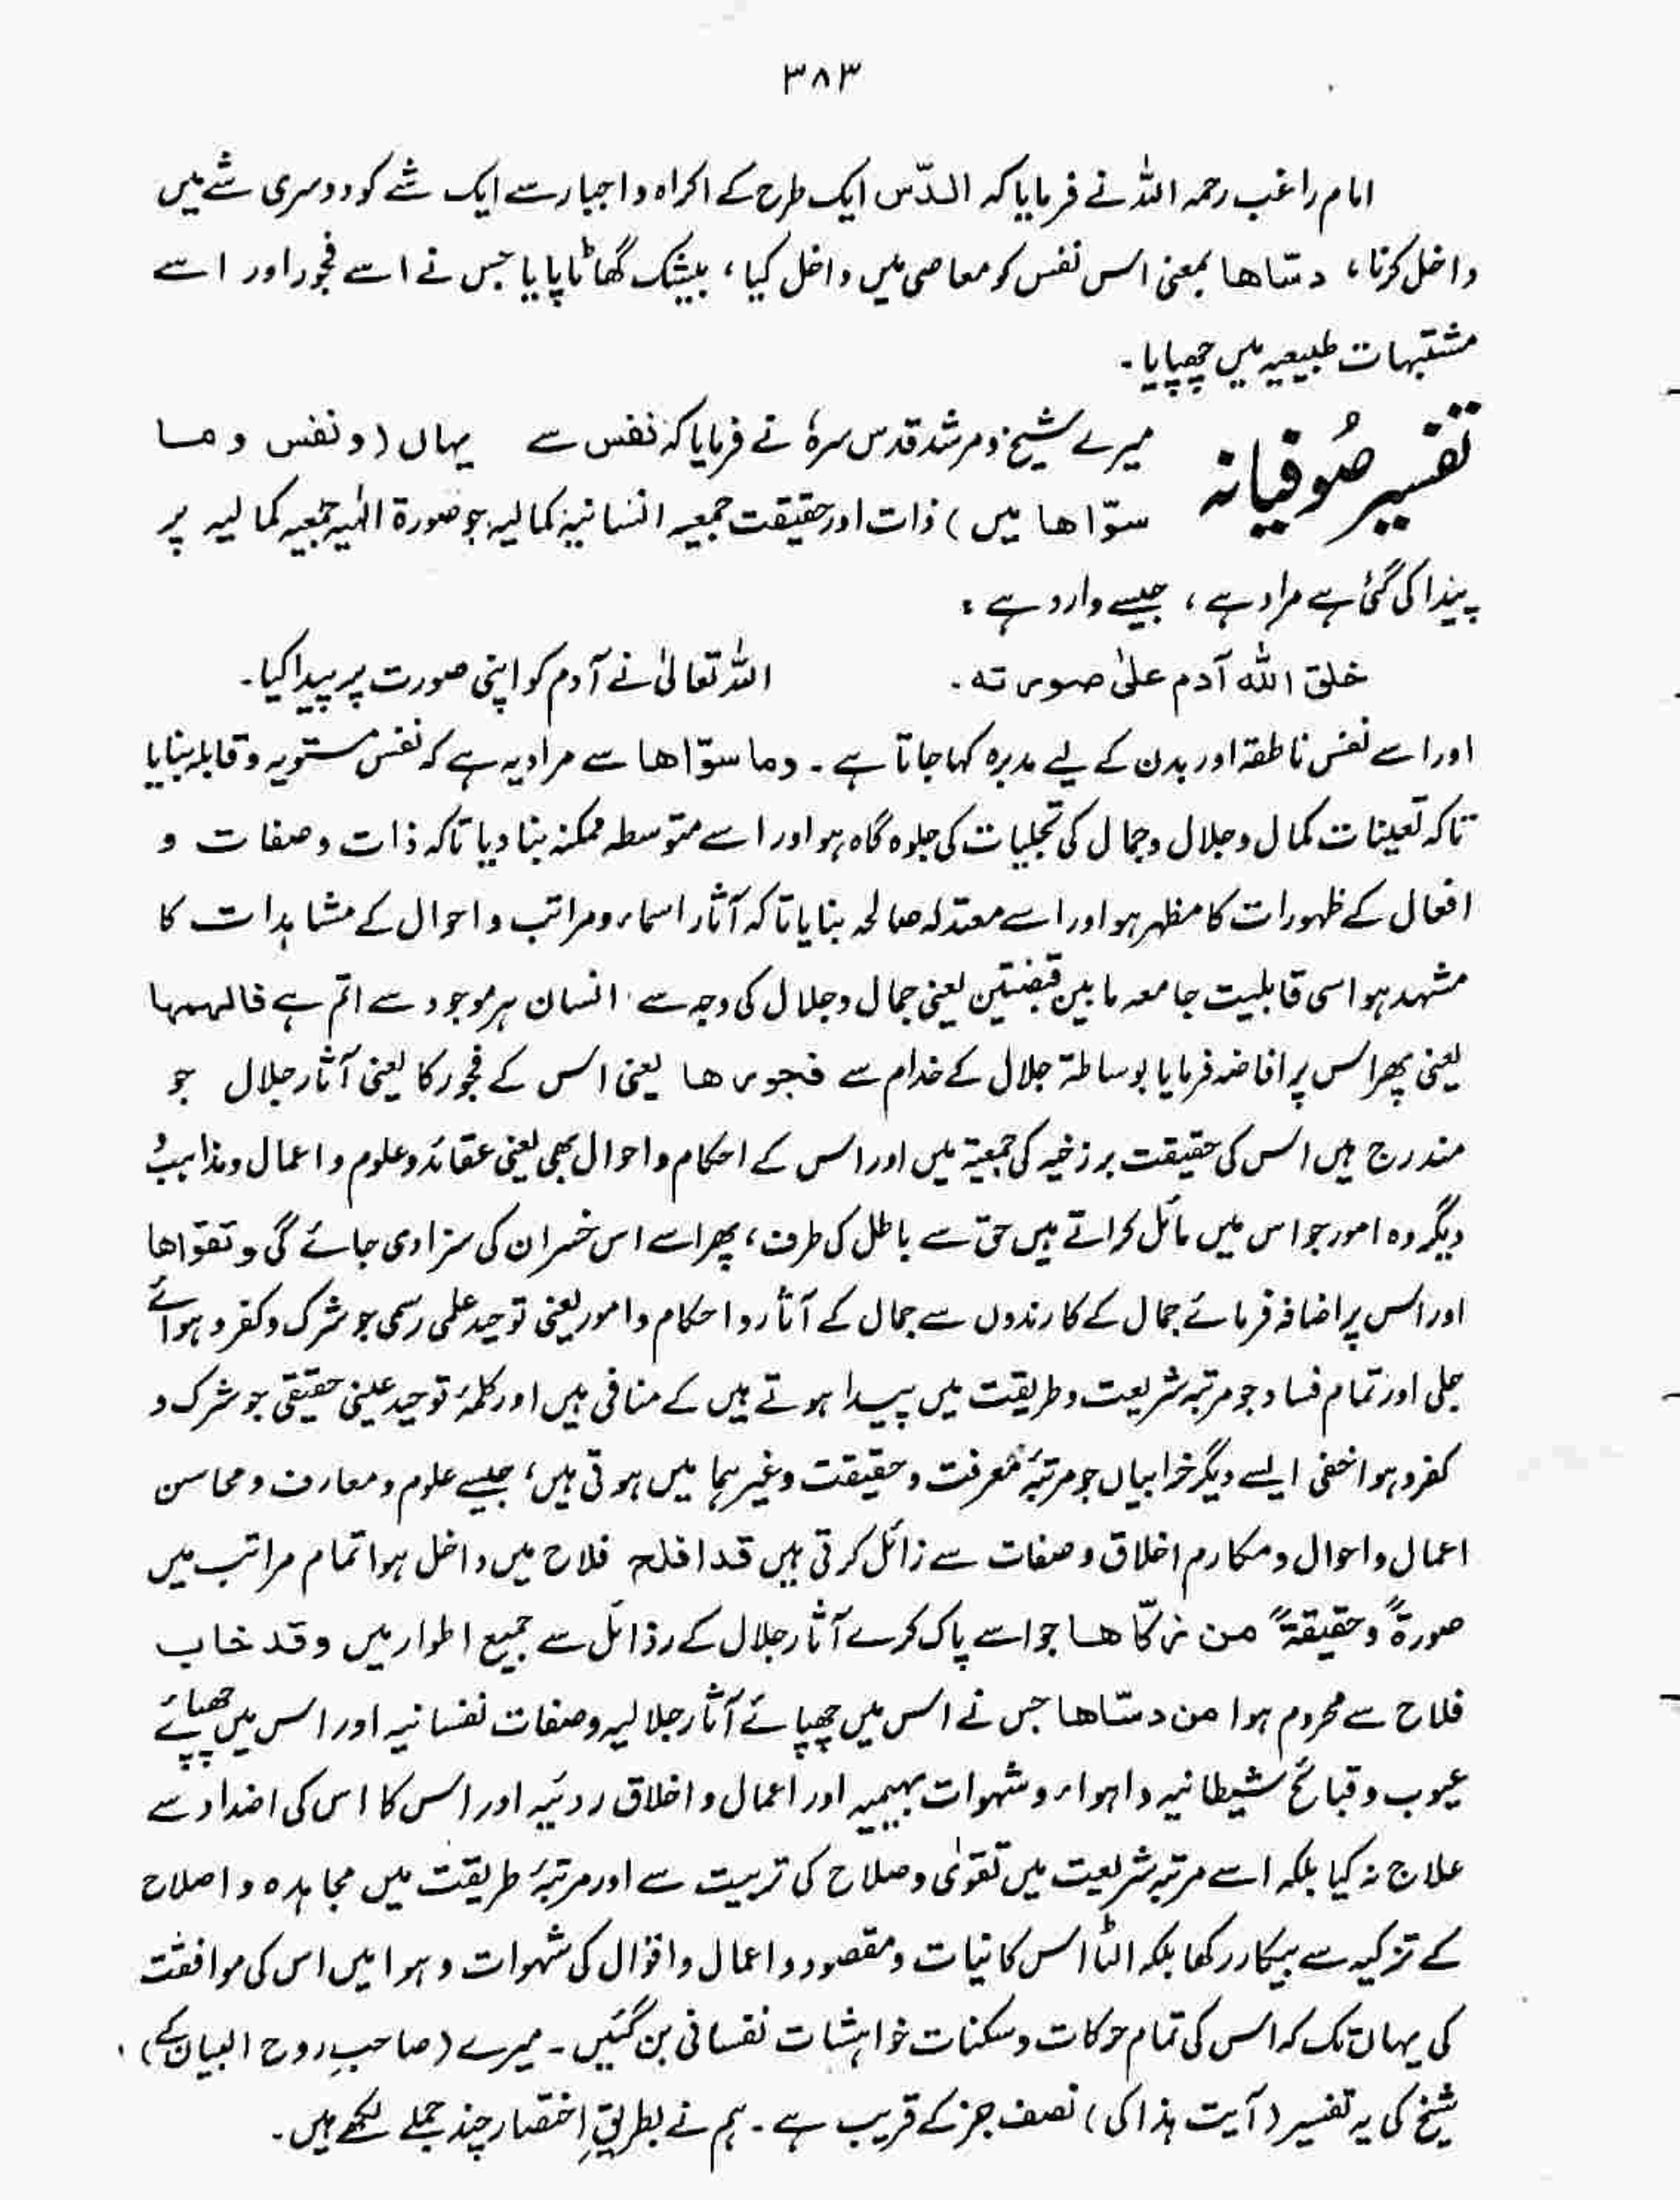 ۳۸۳
امام راغب رحمہ اللہ نے فرمایا کہ الدّس ایک طرح کے اکراہ و اجبار سے ایک شے کو دوسری شے میں
داخل کرنا، دسّاھا بمعنی اس نفس کو معاصی میں داخل کیا، بیشک گھاٹا پایا جس نے اسے فجور اور اسے
مشتبہات طبیعیہ میں چھپایا۔
تفسیر صُوفیانہ
میرے شیخ و مرشد قدس سرہٗ نے فرمایا کہ نفس سے یہاں (ونفس وما
سوّاھا میں) ذات اور حقیقت جمعیہ انسانیہ کمالیہ جو صورۃ الٰہیہ جمعیہ کمالیہ پر
پیدا کی گئی ہے مراد ہے، جیسے وارد ہے:
خلق اللہ آدم علیٰ صورتہ۔ اللہ تعالیٰ نے آدم کو اپنی صورت پر پیدا کیا۔
اور اسے نفس ناطقہ اور بدن کے لیے مدبرہ کہا جاتا ہے۔ وما سوّاھا سے مراد یہ ہے کہ نفس مستویہ و قابلہ بنایا
تاکہ تعینات کمال و جلال و جمال کی تجلیات کی جلوہ گاہ ہو اور اسے متوسطہ ممکنہ بنا دیا تاکہ ذات و صفات و
افعال کے ظہورات کا مظہر ہو اور اسے معتدلہ صالحہ بنایا تاکہ آثار اسماء و مراتب و احوال کے مشاہدات کا
مشہد ہو اسی قابلیت جامعہ مابین قبضتین یعنی جمال و جلال کی وجہ سے انسان ہر موجود سے اتم ہے فالھمھا
یعنی پھر اس پر افاضہ فرمایا بوساطۃ جلال کے خدام سے فجورھا یعنی اس کے فجور کا یعنی آثار جلال جو
مندرج ہیں اس کی حقیقت برزخیہ کی جمعیۃ میں اور اس کے احکام و احوال بھی یعنی عقائد و علوم و اعمال و مذاہب و
دیگر وہ امور جو اس میں مائل کراتے ہیں حق سے باطل کی طرف، پھر اسے اس خسران کی سزا دی جائے گی وتقواھا
اور اس پر اضافہ فرمائے جمال کے کارندوں سے جمال کے آثار و احکام و امور یعنی توحید علمی رسمی جو شرک و کفر و ہوائے
جلی اور تمام فساد جو مرتبہ شریعت و طریقت میں پیدا ہوتے ہیں کے منافی ہیں اور کلمۂ توحید عینی حقیقی جو شرک و
کفر و ہوا خفی ایسے دیگر خرابیاں جو مرتبۂ معرفت و حقیقت وغیرہما میں ہوتی ہیں، جیسے علوم و معارف و محاسن
اعمال و احوال و مکارم اخلاق و صفات سے زائل کرتی ہیں قد افلح فلاح میں داخل ہوا تمام مراتب میں
صورۃً و حقیقۃً من زکّاھا جو اسے پاک کرے آثار جلال کے رذائل سے جمیع اطوار میں وقد خاب
فلاح سے محروم ہوا من دسّاھا جس نے اس میں چھپائے آثار جلالیہ و صفات نفسانیہ اور اس میں چھپائے
عیوب و قبائح شیطانیہ و اہواء و شہوات بہیمیہ اور اعمال و اخلاق ردئیہ اور اس کا اس کی اضداد سے
علاج نہ کیا بلکہ اسے مرتبہ شریعت میں تقوٰی و صلاح کی تربیت سے اور مرتبۂ طریقت میں مجاہدہ و اصلاح
کے تزکیہ سے بیکار رکھا بلکہ الٹا اس کا نیات و مقصود و اعمال و اقوال کی شہوات و ہوا میں اس کی موافقت
کی یہاں تک کہ اس کی تمام حرکات و سکنات خواہشات نفسانی بن گئیں۔ میرے (صاحبِ روح البیان کے)
شیخ کی یہ تفسیر (آیت ہذا کی) نصف جز کے قریب ہے۔ ہم نے بطریقِ اختصار چند جملے لکھے ہیں۔